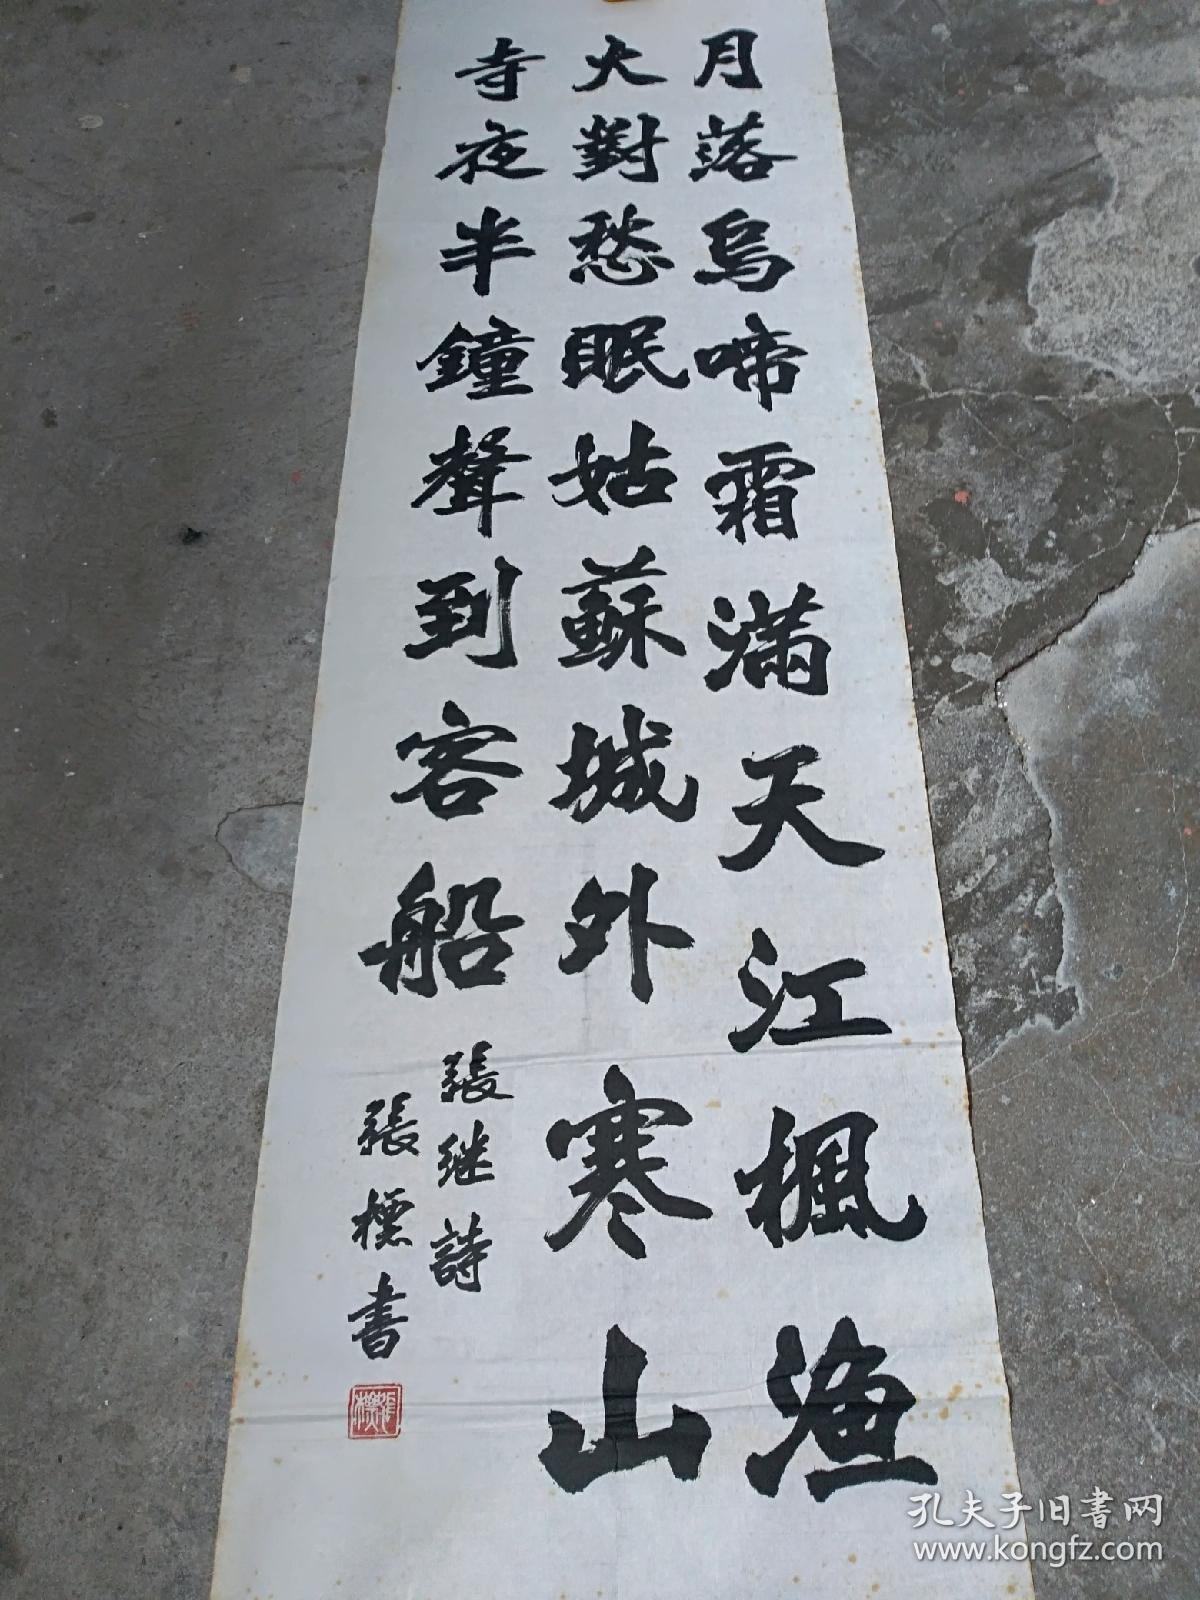 月落烏啼霜滿天江楓渔
火對愁眠姑蘇城外寒山
寺夜半鐘聲到客船
張继詩
張標書
張標
孔夫子旧書网
www.kongfz.com